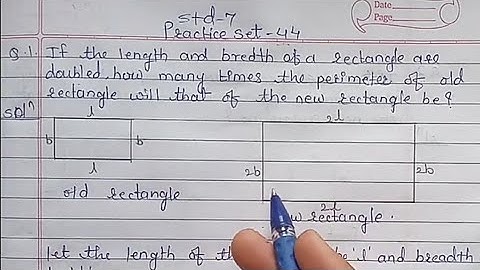 Date
Page
std-7
Practice set-44
Q.1. If the length and bredth of a rectangle are
doubled, how many times the perimeter of old
rectangle will that of the new rectangle be?
solⁿ
l
2l
b
b
2b
2b
l
old rectangle
2l
rectangle.
let the length of the
be 'l' and breadth